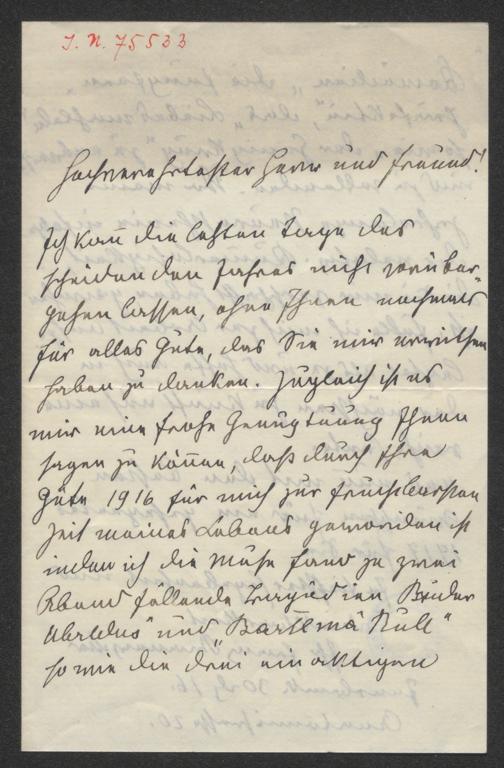 I. N. 75533
Hochverehrtester Herr und Freund!
Ich kann die letzten Tage des
scheidenden Jahres nicht vorüber-
gehen lassen, ohne Ihnen nochmals
für alles Gute, das Sie mir erwiesen
haben zu danken. Zugleich ist es
mir eine frohe Genugtuung Ihnen
sagen zu können, daß durch Ihre
Güte 1916 für mich zur fruchtbarsten
Zeit meines Lebens geworden ist
indem ich die Muße fand zu zwei
Abend füllende Tragödien Bruder
Ubaldus" und „Bartlmä Null"
sowie die drei einaktigen